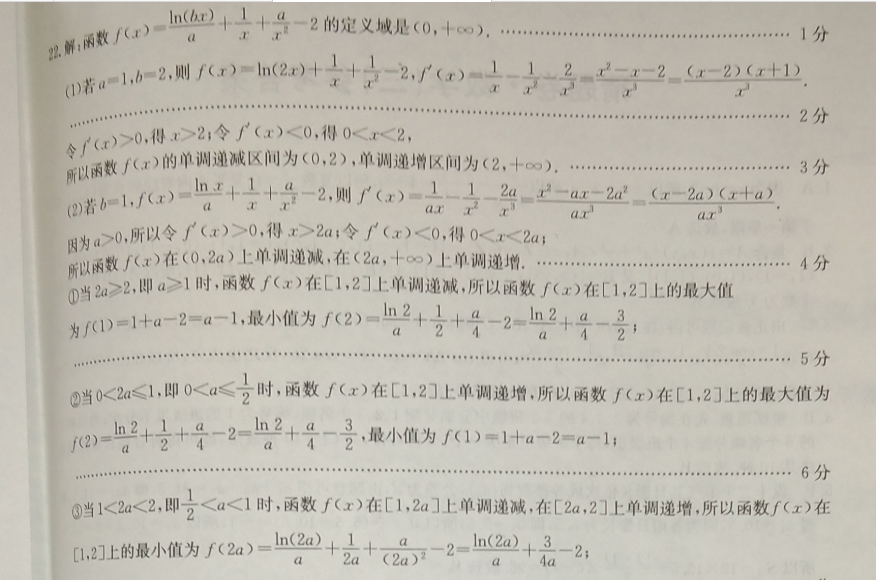 22.解:函数 f(x)=ln(bx)/a+1/x+a/x²-2 的定义域是(0,+∞). …… 1分
(1)若 a=1,b=2,则 f(x)=ln(2x)+1/x+1/x²-2,f′(x)=1/x-1/x²-2/x³=(x²-x-2)/x³=(x-2)(x+1)/x³.
…… 2分
令 f′(x)>0,得 x>2;令 f′(x)<0,得 0<x<2,
所以函数 f(x)的单调递减区间为(0,2),单调递增区间为(2,+∞). …… 3分
(2)若 b=1,f(x)=ln x/a+1/x+a/x²-2,则 f′(x)=1/ax-1/x²-2a/x³=(x²-ax-2a²)/ax³=(x-2a)(x+a)/ax³.
因为 a>0,所以令 f′(x)>0,得 x>2a;令 f′(x)<0,得 0<x<2a;
所以函数 f(x)在(0,2a)上单调递减,在(2a,+∞)上单调递增. …… 4分
①当 2a≥2,即 a≥1 时,函数 f(x)在[1,2]上单调递减,所以函数 f(x)在[1,2]上的最大值
为 f(1)=1+a-2=a-1,最小值为 f(2)=ln 2/a+1/2+a/4-2=ln 2/a+a/4-3/2;
…… 5分
②当 0<2a≤1,即 0<a≤1/2时,函数 f(x)在[1,2]上单调递增,所以函数 f(x)在[1,2]上的最大值为
f(2)=ln 2/a+1/2+a/4-2=ln 2/a+a/4-3/2,最小值为 f(1)=1+a-2=a-1;
…… 6分
③当 1<2a<2,即1/2<a<1 时,函数 f(x)在[1,2a]上单调递减,在[2a,2]上单调递增,所以函数 f(x)在
[1,2]上的最小值为 f(2a)=ln(2a)/a+1/2a+a/(2a)²-2=ln(2a)/a+3/4a-2;